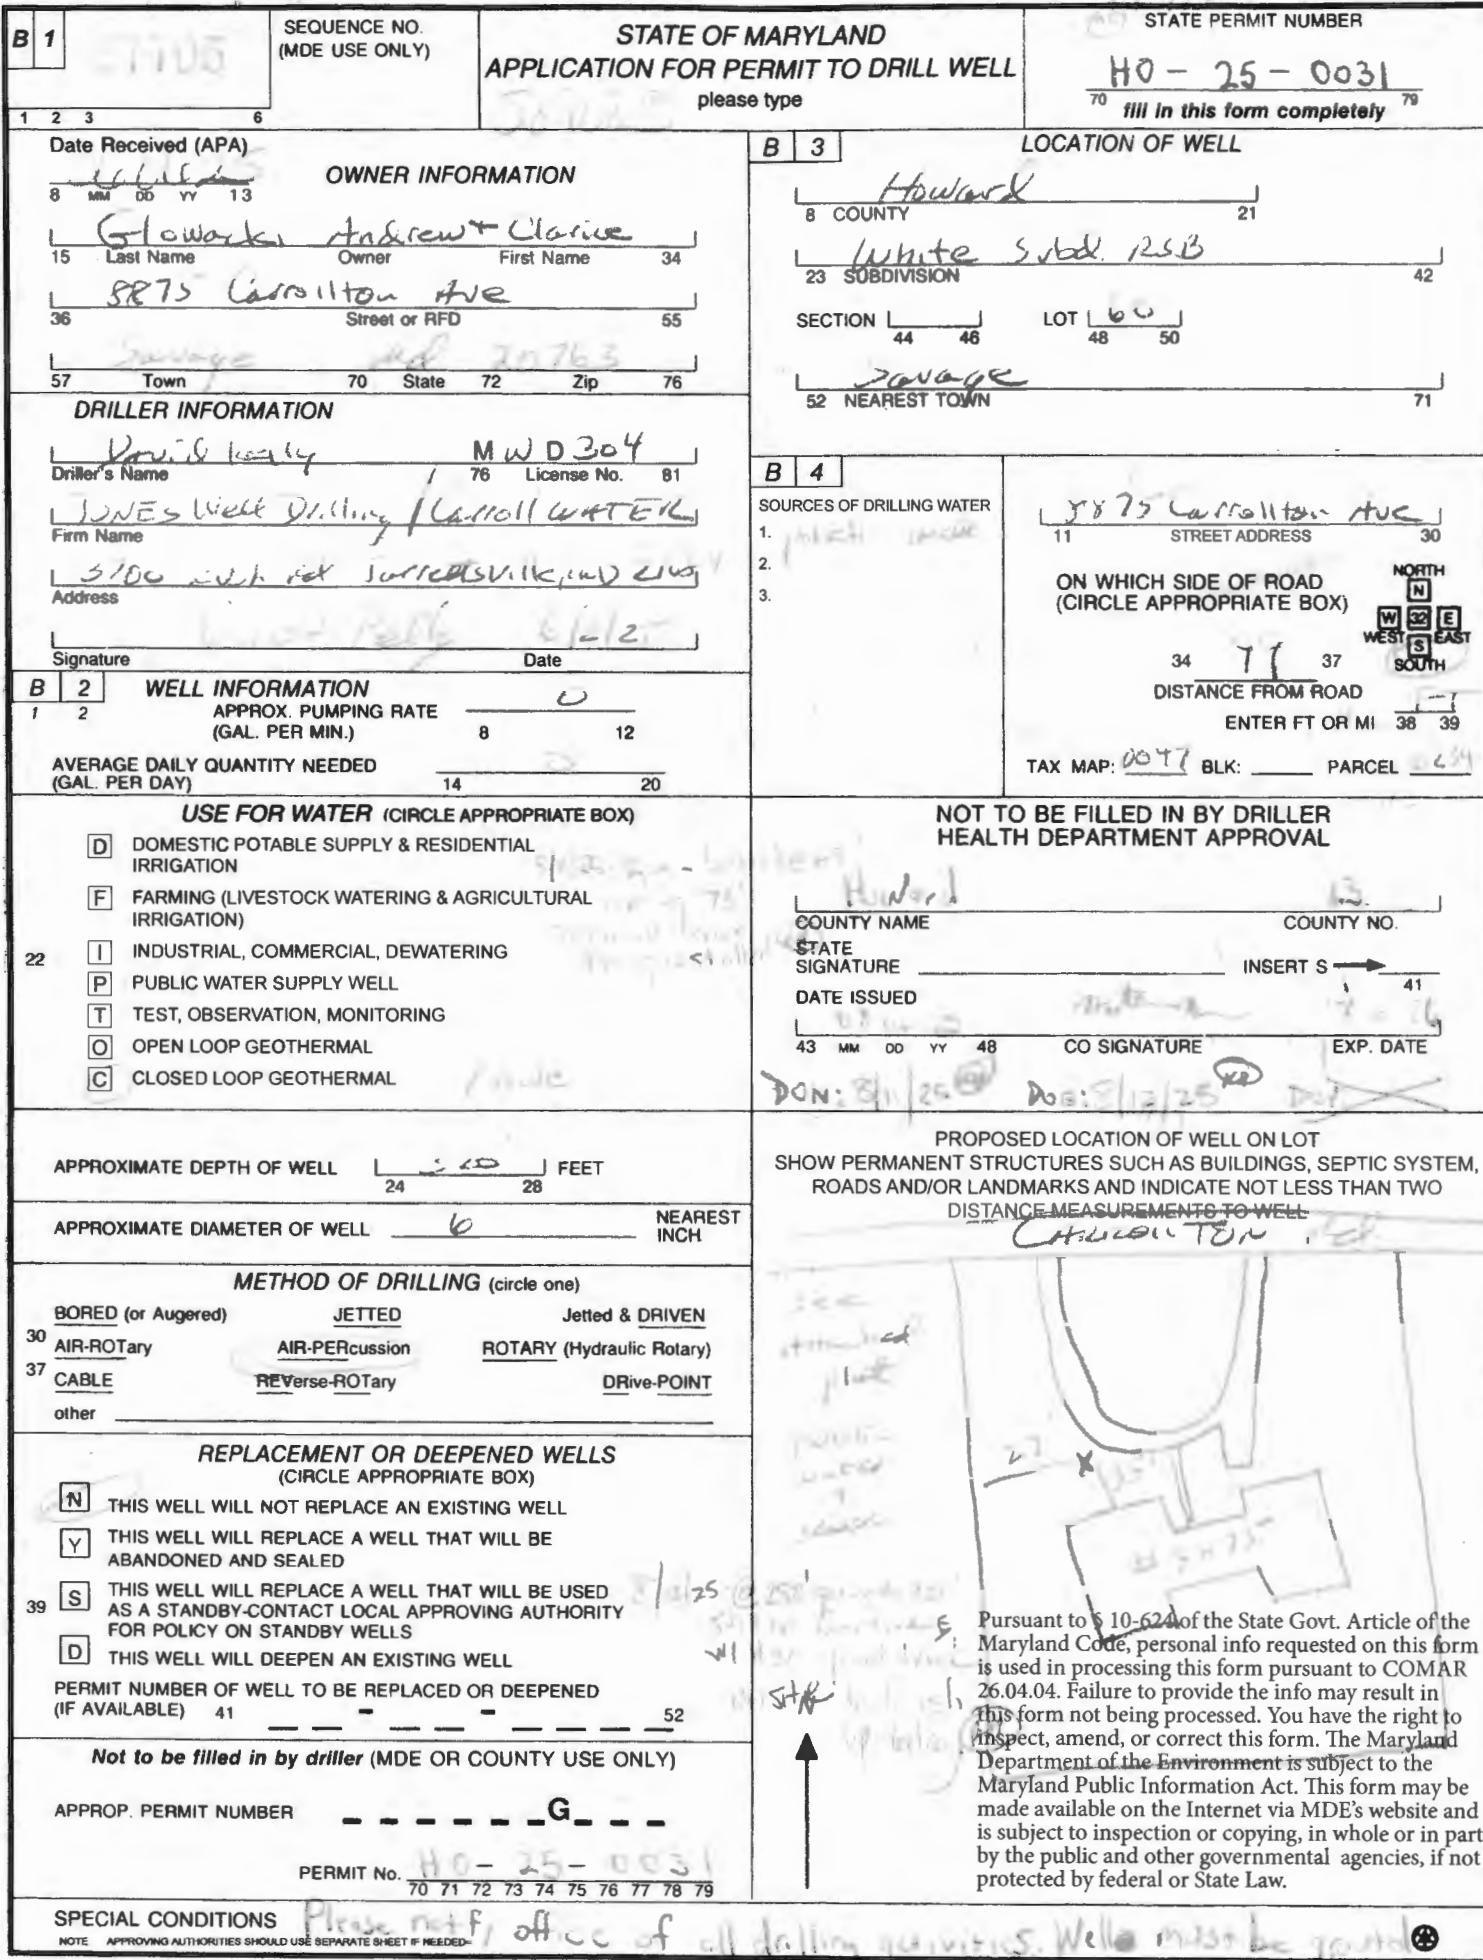 B 1
SEQUENCE NO.
(MDE USE ONLY)
1 2 3 6
STATE OF MARYLAND
APPLICATION FOR PERMIT TO DRILL WELL
please type
STATE PERMIT NUMBER
HO - 25 - 0031
70 fill in this form completely 79
Date Received (APA)
8 MM DD YY 13
OWNER INFORMATION
Glowacki Andrew + Clarice
15 Last Name Owner First Name 34
8875 Carrollton Ave
36 Street or RFD 55
Savage Md 20763
57 Town 70 State 72 Zip 76
DRILLER INFORMATION
David MWD304
Driller's Name 76 License No. 81
JONES Well Drilling / Carroll WATER
Firm Name
Jarrettsville, MD
Address
Signature Date
B 2 WELL INFORMATION
1 2 APPROX. PUMPING RATE 0
(GAL. PER MIN.) 8 12
AVERAGE DAILY QUANTITY NEEDED
(GAL. PER DAY) 14 20
USE FOR WATER (CIRCLE APPROPRIATE BOX)
D DOMESTIC POTABLE SUPPLY & RESIDENTIAL
IRRIGATION
F FARMING (LIVESTOCK WATERING & AGRICULTURAL
IRRIGATION)
22 I INDUSTRIAL, COMMERCIAL, DEWATERING
P PUBLIC WATER SUPPLY WELL
T TEST, OBSERVATION, MONITORING
O OPEN LOOP GEOTHERMAL
C CLOSED LOOP GEOTHERMAL
APPROXIMATE DEPTH OF WELL FEET
24 28
APPROXIMATE DIAMETER OF WELL 6 NEAREST
INCH
METHOD OF DRILLING (circle one)
BORED (or Augered) JETTED Jetted & DRIVEN
30 AIR-ROTary AIR-PERcussion ROTARY (Hydraulic Rotary)
37 CABLE REVerse-ROTary DRive-POINT
other
REPLACEMENT OR DEEPENED WELLS
(CIRCLE APPROPRIATE BOX)
N THIS WELL WILL NOT REPLACE AN EXISTING WELL
Y THIS WELL WILL REPLACE A WELL THAT WILL BE
ABANDONED AND SEALED
39 S THIS WELL WILL REPLACE A WELL THAT WILL BE USED
AS A STANDBY-CONTACT LOCAL APPROVING AUTHORITY
FOR POLICY ON STANDBY WELLS
D THIS WELL WILL DEEPEN AN EXISTING WELL
PERMIT NUMBER OF WELL TO BE REPLACED OR DEEPENED
(IF AVAILABLE) 41 - - 52
Not to be filled in by driller (MDE OR COUNTY USE ONLY)
APPROP. PERMIT NUMBER G
PERMIT No. HO - 25 - 0031
70 71 72 73 74 75 76 77 78 79
B 3 LOCATION OF WELL
Howard
8 COUNTY 21
White Subd. RSB
23 SUBDIVISION 42
SECTION LOT 60
44 46 48 50
Savage
52 NEAREST TOWN 71
B 4
SOURCES OF DRILLING WATER
1.
2.
3.
8875 Carrollton Ave
11 STREET ADDRESS 30
ON WHICH SIDE OF ROAD
(CIRCLE APPROPRIATE BOX)
NORTH
N
W 32 E
WEST EAST
S
SOUTH
34 37
DISTANCE FROM ROAD
ENTER FT OR MI 38 39
TAX MAP: 0047 BLK: PARCEL
NOT TO BE FILLED IN BY DRILLER
HEALTH DEPARTMENT APPROVAL
Howard 13
COUNTY NAME COUNTY NO.
STATE
SIGNATURE INSERT S 41
DATE ISSUED
43 MM DD YY 48 CO SIGNATURE EXP. DATE
DON: 8/11/25 DOG: 8/13/25
PROPOSED LOCATION OF WELL ON LOT
SHOW PERMANENT STRUCTURES SUCH AS BUILDINGS, SEPTIC SYSTEM,
ROADS AND/OR LANDMARKS AND INDICATE NOT LESS THAN TWO
DISTANCE MEASUREMENTS TO WELL
see
attached
X
# 8875
Pursuant to § 10-624 of the State Govt. Article of the
Maryland Code, personal info requested on this form
is used in processing this form pursuant to COMAR
26.04.04. Failure to provide the info may result in
this form not being processed. You have the right to
inspect, amend, or correct this form. The Maryland
Department of the Environment is subject to the
Maryland Public Information Act. This form may be
made available on the Internet via MDE's website and
is subject to inspection or copying, in whole or in part
by the public and other governmental agencies, if not
protected by federal or State Law.
SPECIAL CONDITIONS Please notify office of all drilling activities. Wells must be grouted
NOTE APPROVING AUTHORITIES SHOULD USE SEPARATE SHEET IF NEEDED-